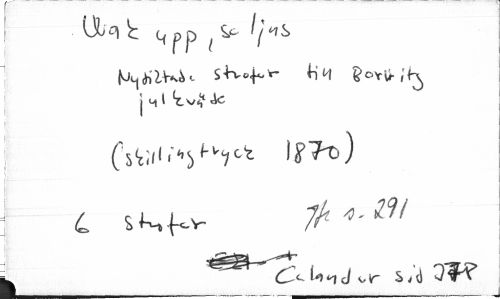 Vak upp, se ljus
Nydiktade strofer till Borwitz
julkväde
(skillingtryck 1870)
6 strofer
s. 291
Calander sid 278